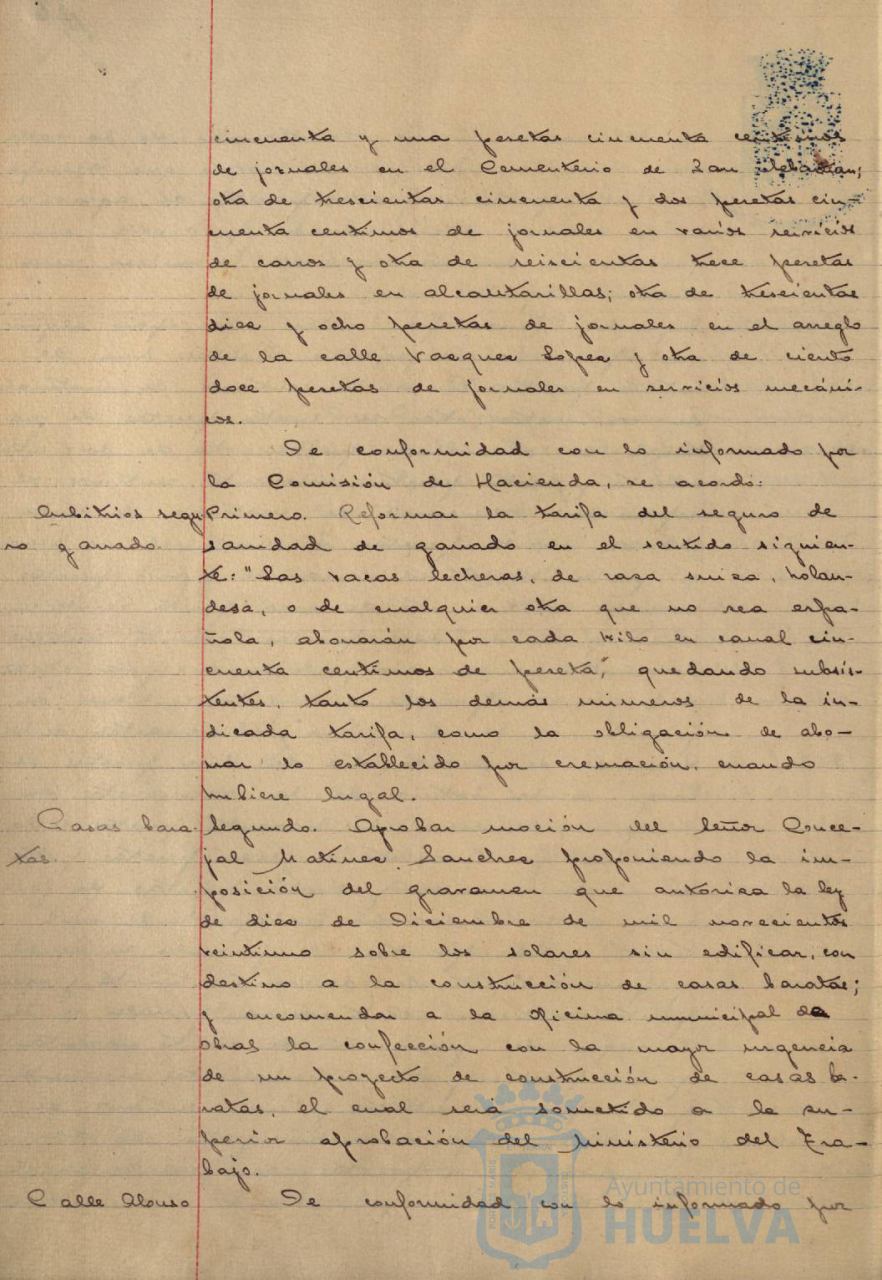 cincuenta y una pesetas cincuenta centimos
de jornales en el Cementerio de San Sebastian;
otra de trescientas cincuenta y dos pesetas cin-
cuenta centimos de jornales en varios servicios
de carros y otra de seiscientas trece pesetas
de jornales en alcantarillas; otra de trescientas
diez y ocho pesetas de jornales en el arreglo
de la calle Vazquez Lopez y otra de ciento
doce pesetas de jornales en servicios mecáni-
cos.
De conformidad con lo informado por
la Comisión de Hacienda, se acordo:
Arbitrios segu-
ro ganado.
Primero. Reformar la tarifa del seguro de
sanidad de ganado en el sentido siguien-
te: "Las vacas lecheras, de raza suiza, holan-
desa, o de cualquier otra que no sea espa-
ñola, abonarán por cada kilo en canal cin-
cuenta centimos de peseta", quedando subsis-
tentes, tanto los demás numeros de la in-
dicada tarifa, como la obligación de abo-
nar lo establecido por cremación, cuando
hubiere lugar.
Casas bara-
tas.
Segundo. Aprobar moción del señor Conce-
jal Matinez Sanchez proponiendo la im-
posición del gravamen que autóriza la ley
de diez de Diciembre de mil novecientos
veintiuno sobre los solares sin edificar, con
destino a la construcción de casas baratas;
y encomendar a la oficina municipal de
obras la confección con la mayor urgencia
de un proyecto de construcción de casas ba-
ratas, el cual será sometido a la su-
perior aprobación del Ministerio del Tra-
bajo.
Calle Alonso
De conformidad con lo informado por
Ayuntamiento de
HUELVA